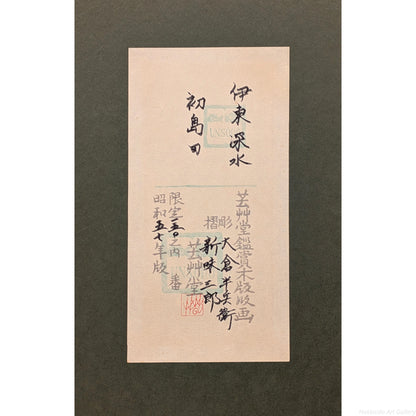 伊東深水
初島田
芸艸堂鑑賞木版版画
彫 大倉半兵衛
摺 新味三郎
芸艸堂
限定一五〇之内 番
昭和五七年版
UNSO